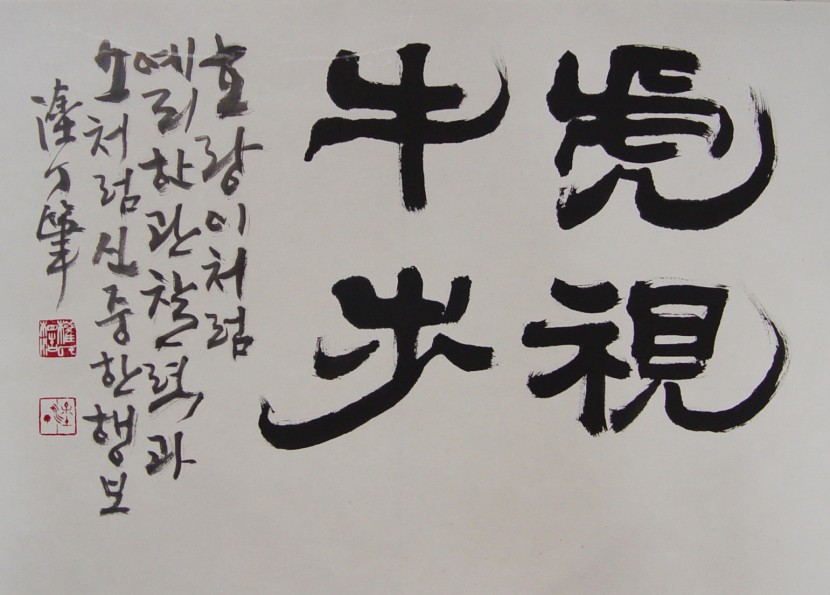 虎視
牛步
호랑이처럼
예리한 관찰력과
소처럼 신중한 행보